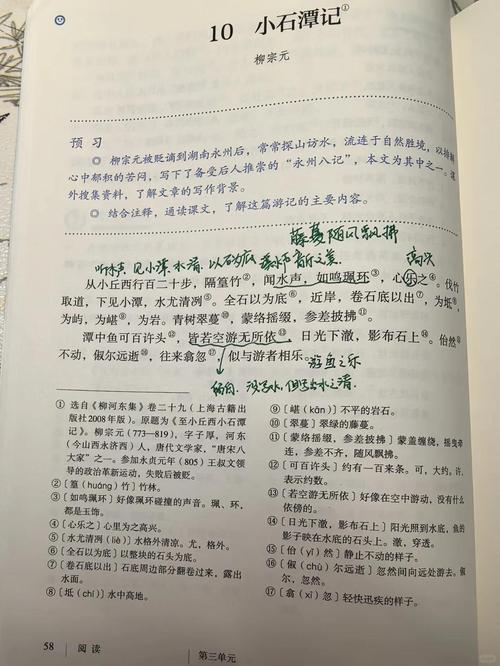 10 小石潭记①
柳宗元
预 习
◎ 柳宗元被贬谪到湖南永州后，常常探山访水，流连于自然胜境，以排解
心中郁积的苦闷，写下了备受后人推崇的“永州八记”，本文为其中之一。课
外搜集资料，了解文章的写作背景。
◎ 结合注释，通读课文，了解这篇游记的主要内容。
藤蔓随风飘拂
听水声 见小潭 水清 以石为底
高兴
从小丘西行百二十步，隔篁竹②，闻水声，如鸣珮环③，心乐之④。伐竹
取道，下见小潭，水尤清冽⑤。全石以为底⑥，近岸，卷石底以出⑦，为坻⑧，
为屿，为嵁⑨，为岩。青树翠蔓⑩，蒙络摇缀，参差披拂⑪。
潭中鱼可百许头⑫，皆若空游无所依⑬，日光下澈，影布石上⑭。佁然⑮
不动，俶尔远逝⑯，往来翕忽⑰，似与游者相乐。
游鱼之乐
①选自《柳河东集》卷二十九（上海古籍出
版社2008年版）。原题为《至小丘西小石
潭记》。柳宗元（773—819），字子厚，河东
（今山西永济西）人，唐代文学家，“唐宋八
大家”之一。参加永贞元年（805）王叔文领
导的政治革新运动，失败后被贬。
②〔篁（huáng）竹〕竹林。
③〔如鸣珮环〕好像珮环碰撞的声音。珮、环，
都是玉饰。
④〔心乐之〕心里为之高兴。
⑤〔水尤清冽（liè）〕水格外清凉。尤，格外。
⑥〔全石以为底〕以整块的石头为底。
⑦〔卷石底以出〕石底周边部分翻卷过来，露出
水面。
⑧〔坻（chí）〕水中高地。
⑨〔嵁（kān）〕不平的岩石。
⑩〔翠蔓〕翠绿的藤蔓。
⑪〔蒙络摇缀，参差披拂〕蒙盖缠绕，摇曳牵
连，参差不齐，随风飘拂。
⑫〔可百许头〕大约有一百来条。可，大约。许，
表示约数。
⑬〔若空游无所依〕好像在空中游动，没有什么
依傍的。
⑭〔日光下澈，影布石上〕阳光照到水底，鱼的
影子映在水底的石头上。澈，穿透。
⑮〔佁（yǐ）然〕静止不动的样子。
⑯〔俶（chù）尔远逝〕忽然间向远处游去。俶
尔，忽然。
⑰〔翕（xī）忽〕轻快迅疾的样子。
58 阅读
第三单元